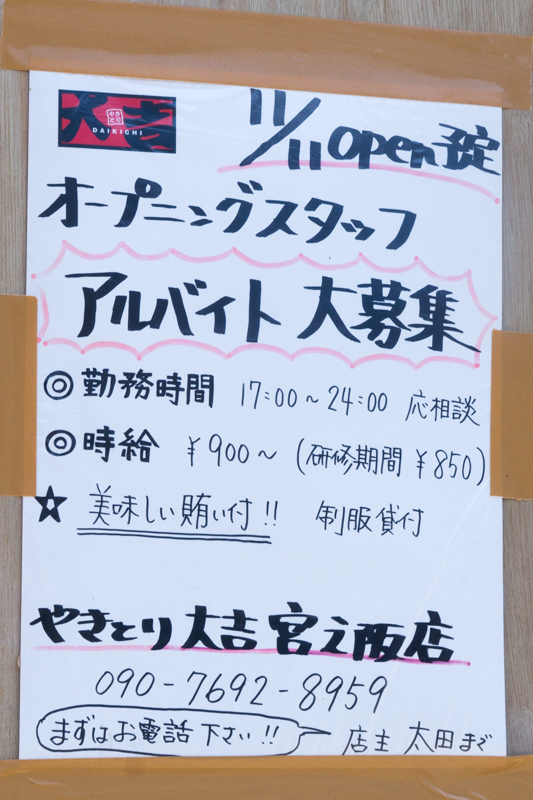 大吉
やきとり
DAIKICHI
11/11 Open予定
オープニングスタッフ
アルバイト 大募集
◎勤務時間 17:00~24:00 応相談
◎時給 ¥900~ (研修期間 ¥850)
☆美味しい賄い付!! 制服貸付
やきとり大吉 宮之阪店
090-7692-8959
まずはお電話下さい!! 店主 太田まで